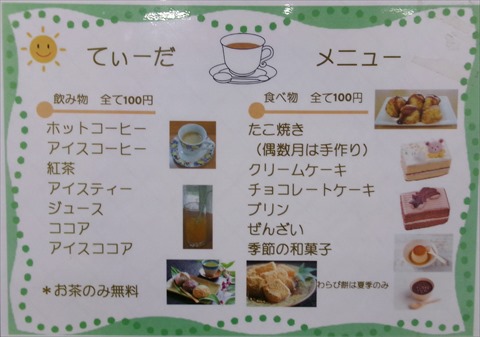 てぃーだ メニュー
飲み物 全て100円
ホットコーヒー
アイスコーヒー
紅茶
アイスティー
ジュース
ココア
アイスココア
＊お茶のみ無料
食べ物 全て100円
たこ焼き
（偶数月は手作り）
クリームケーキ
チョコレートケーキ
プリン
ぜんざい
季節の和菓子
わらび餅は夏季のみ